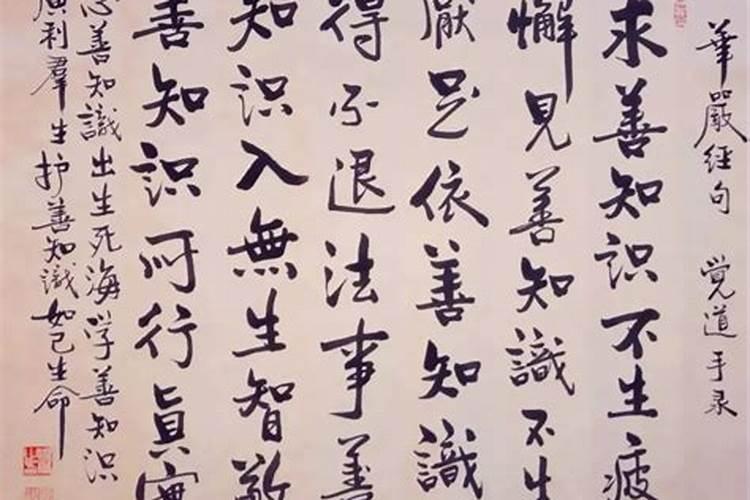 華嚴經句 觉道手录
求善知识不生疲
懈見善知識不生
厭足依善知識
得不退法事善
知识入無生智敬
善知识所行真實
念善知識出生死海学善知识
廣利群生护善知識如己生命